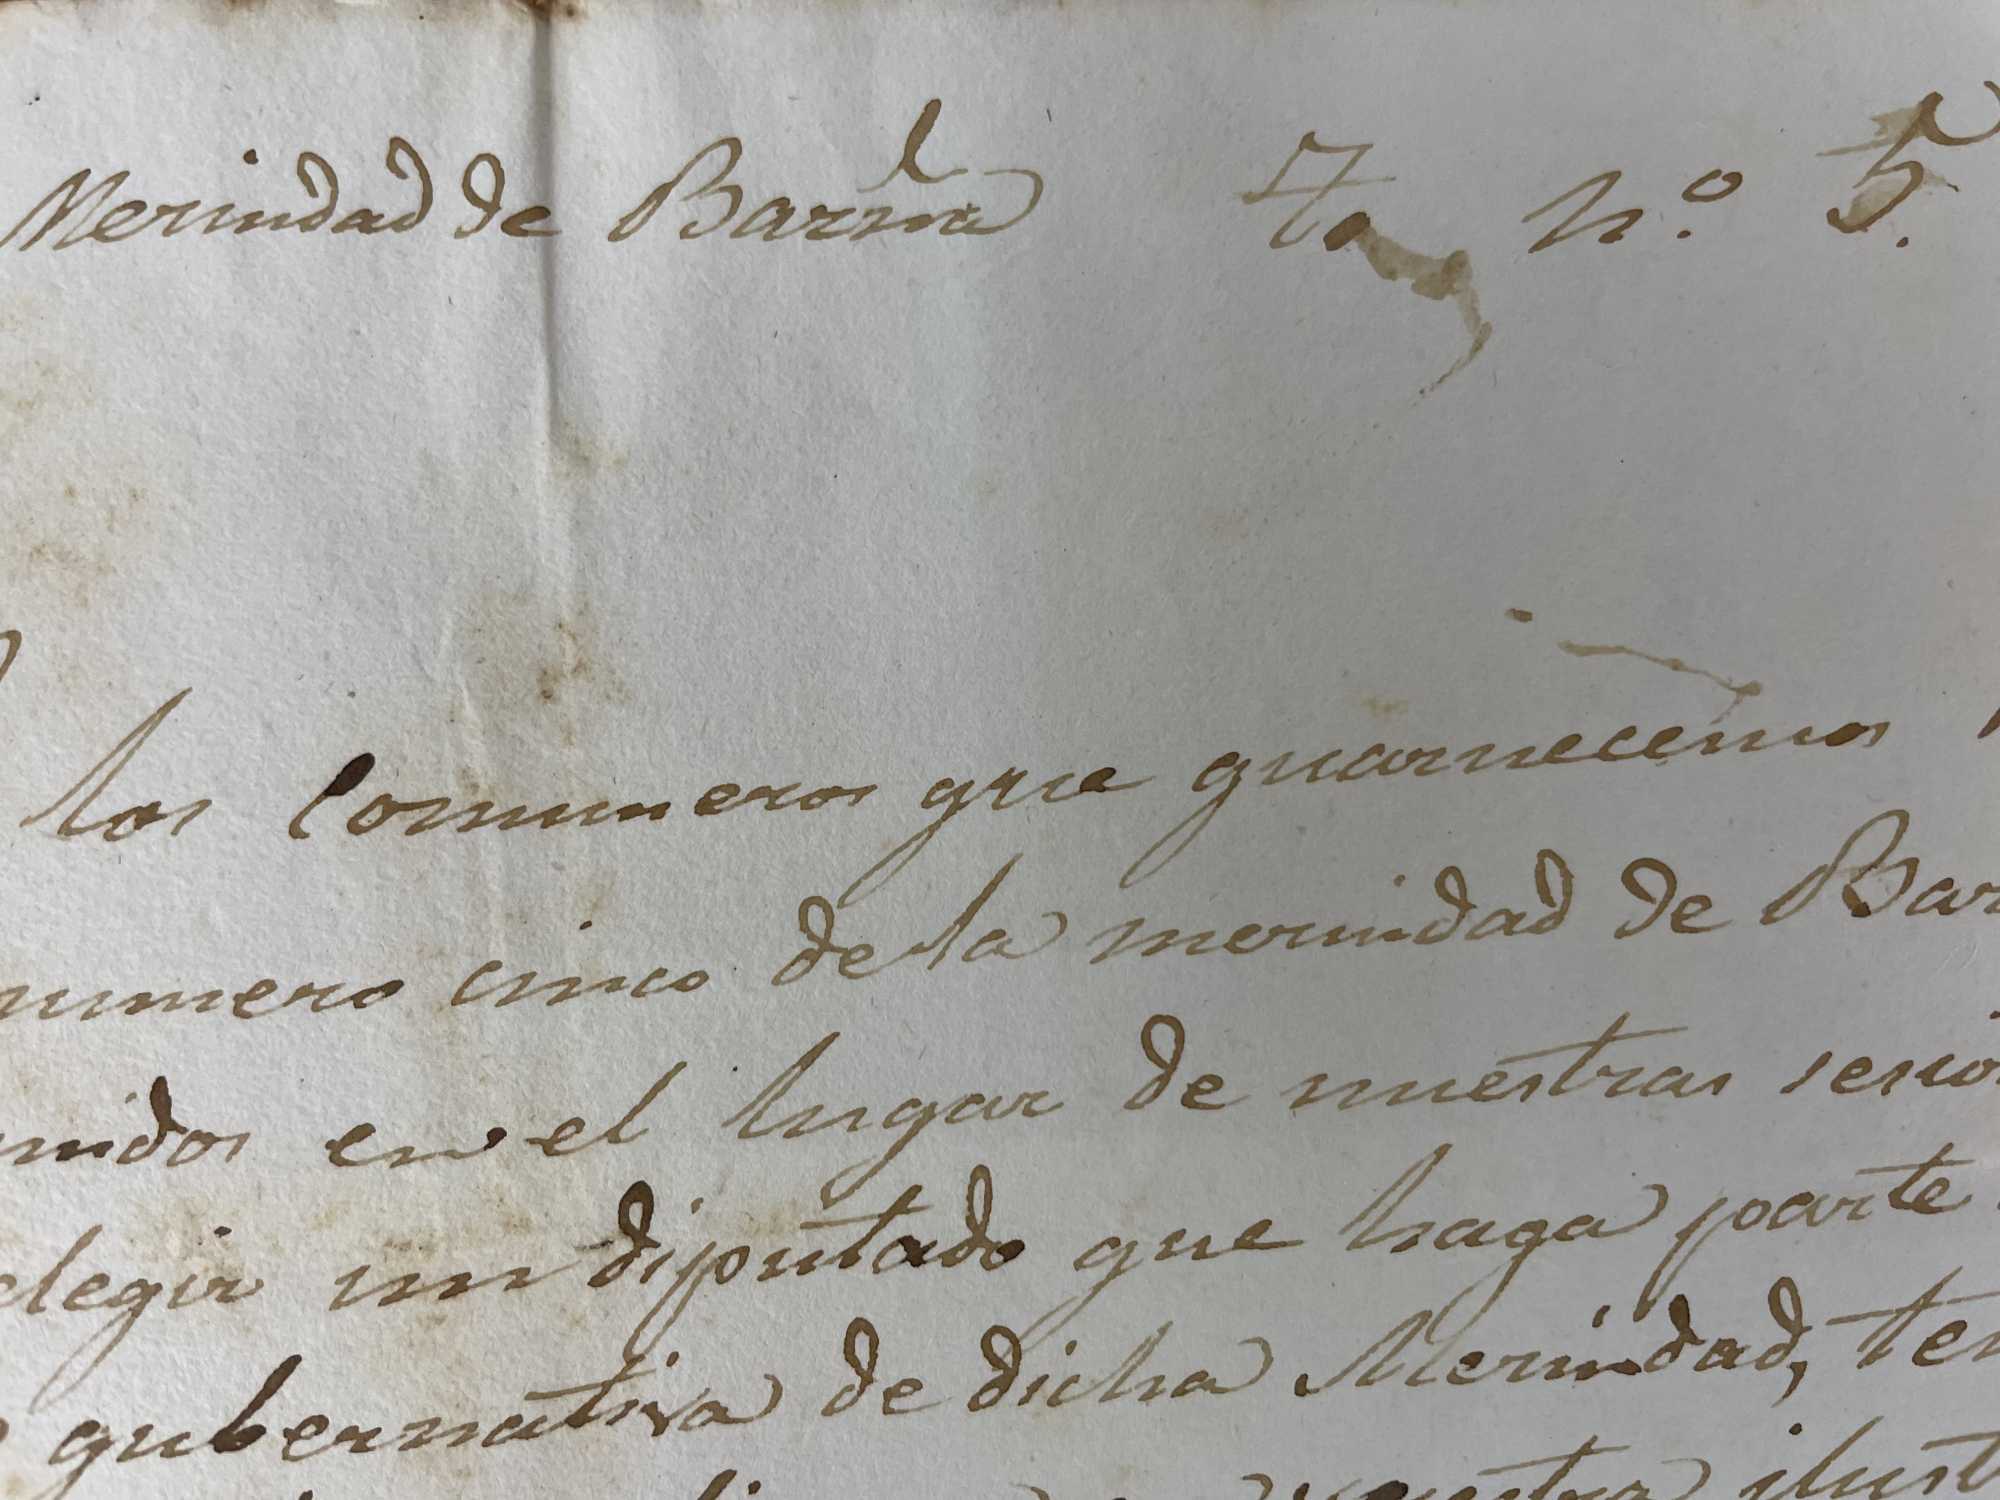 Merindad de Barna T/o n.o 5.
los Comuneros que guarnecemos
numero cinco de la merindad de Bar
nidos en el lugar de nuestras sesio
elegir un diputado que haga parte
gubernativa de dicha Merindad, ten
vuestra ilust